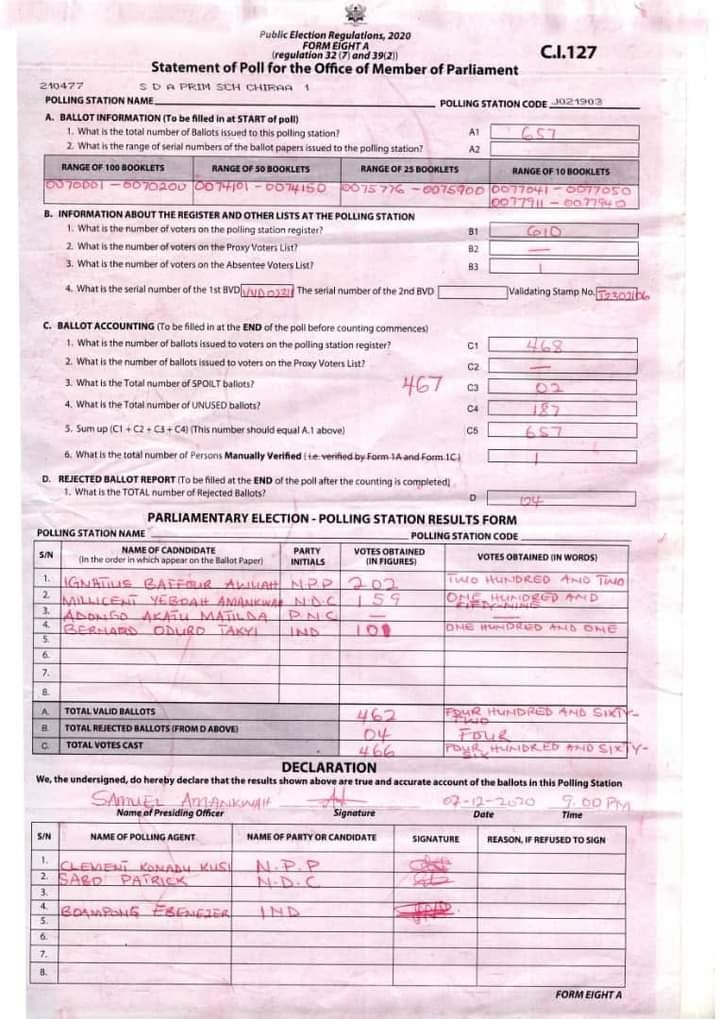 Public Election Regulations, 2020
FORM EIGHT A
(regulation 32 (7) and 39(2))
C.I.127
Statement of Poll for the Office of Member of Parliament
210477 S D A PRIM SCH CHIRAA 1
POLLING STATION NAME
POLLING STATION CODE J021903
A. BALLOT INFORMATION (To be filled in at START of poll)
1. What is the total number of Ballots issued to this polling station? A1 657
2. What is the range of serial numbers of the ballot papers issued to the polling station? A2
RANGE OF 100 BOOKLETS RANGE OF 50 BOOKLETS RANGE OF 25 BOOKLETS RANGE OF 10 BOOKLETS
0070001 - 0070200 0074101 - 0074150 0075776 - 0075900 0077041 - 0077050
0077911 - 0077940
B. INFORMATION ABOUT THE REGISTER AND OTHER LISTS AT THE POLLING STATION
1. What is the number of voters on the polling station register? B1 610
2. What is the number of voters on the Proxy Voters List? B2 —
3. What is the number of voters on the Absentee Voters List? B3 1
4. What is the serial number of the 1st BVD The serial number of the 2nd BVD Validating Stamp No.
C. BALLOT ACCOUNTING (To be filled in at the END of the poll before counting commences)
1. What is the number of ballots issued to voters on the polling station register? C1 468
2. What is the number of ballots issued to voters on the Proxy Voters List? C2 —
3. What is the Total number of SPOILT ballots? 467 C3 02
4. What is the Total number of UNUSED ballots? C4 187
5. Sum up (C1 + C2 + C3 + C4) (This number should equal A.1 above) C5 657
6. What is the total number of Persons Manually Verified (i.e. verified by Form 1A and Form 1C) 1
D. REJECTED BALLOT REPORT (To be filled at the END of the poll after the counting is completed)
1. What is the TOTAL number of Rejected Ballots? D 04
PARLIAMENTARY ELECTION - POLLING STATION RESULTS FORM
POLLING STATION NAME POLLING STATION CODE
S/N NAME OF CADNDIDATE (In the order in which appear on the Ballot Paper) PARTY INITIALS VOTES OBTAINED (IN FIGURES) VOTES OBTAINED (IN WORDS)
1. IGNATIUS BAFFOUR AWUAH N.P.P 202 TWO HUNDRED AND TWO
2. MILLICENT YEBOAH AMANKWAH N.D.C 159 ONE HUNDRED AND FIFTY-NINE
3. ADONGO AKATU MATILDA P.N.C — —
4. BERNARD ODURO TAKYI IND 101 ONE HUNDRED AND ONE
5.
6.
7.
8.
A. TOTAL VALID BALLOTS 462 FOUR HUNDRED AND SIXTY-TWO
B. TOTAL REJECTED BALLOTS (FROM D ABOVE) 04 FOUR
C. TOTAL VOTES CAST 466 FOUR HUNDRED AND SIXTY-SIX
DECLARATION
We, the undersigned, do hereby declare that the results shown above are true and accurate account of the ballots in this Polling Station
SAMUEL AMANKWAH 07-12-2020 9.00 PM
Name of Presiding Officer Signature Date Time
S/N NAME OF POLLING AGENT NAME OF PARTY OR CANDIDATE SIGNATURE REASON, IF REFUSED TO SIGN
1. CLEMENT KONADU KUSI N.P.P
2. SABO PATRICK N.D.C
3.
4. BOAMPONG EBENEZER IND
5.
6.
7.
8.
FORM EIGHT A